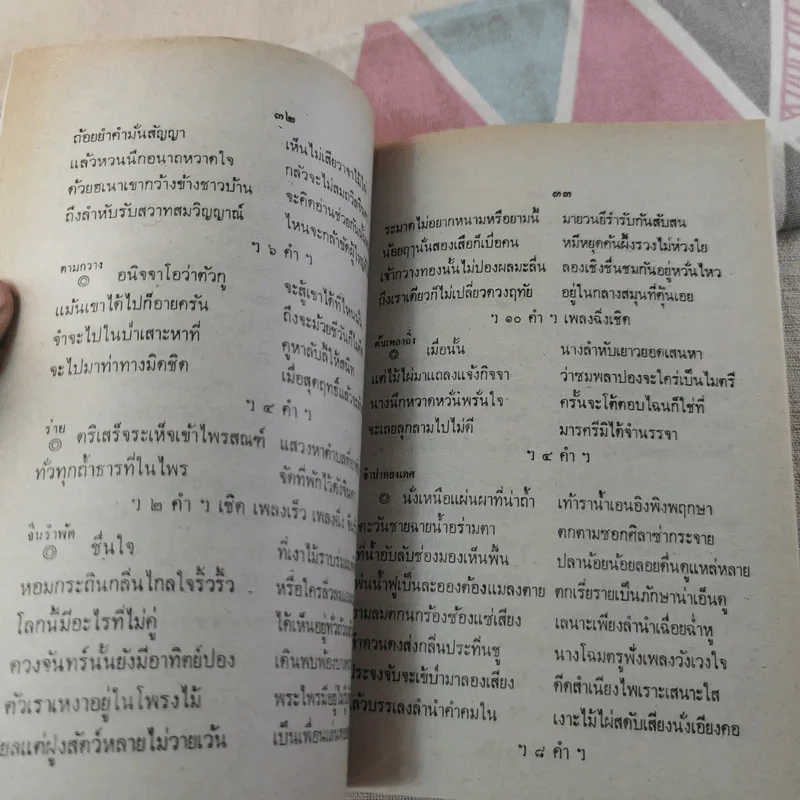 ๓๒
ถ้อยยำคำมั่นสัญญา เห็นไม่เสียวาจา
แล้วหวนนึกอนาถหวาดใจ กลัวจะไม่สม
ด้วยฮเนาเขากว้างข้างชาวบ้าน จะคิดอ่านช่วยกัน
ถึงลำหับรับสวาทสมวิญญาณ์ ไหนจะกล้าขัดผู้ใหญ่
ฯ ๖ คำ ฯ
ตามกวาง
๏ อนิจจาโอว่าตัวกู จะสู้เขาได้ที่ไหน
แม้นเขาได้ไปก็อายครัน ถึงจะม้วยชีวันก็
จำจะไปในป่าเสาะหาที่ คูหาลับลี้ให้สนิท
จะไปมาท่าทางมิดชิด เมื่อสุดฤทธิ์แล้ว
ฯ ๔ คำ ฯ
ร่าย
๏ ตริเสร็จระเห็จเข้าไพรสณฑ์ แสวงหาตำบล
ทั่วทุกถ้ำธารที่ในไพร จัดที่พักไว้ดังจินดา
ฯ ๒ คำ ฯ เชิด เพลงเร็ว เพลงฉิ่ง
จีนรำพัด
๏ ชื่นใจ ที่เงาไม้ราบร่ม
หอมกระถินกลิ่นไกลใจริ้วริ้ว หรือใครลิ่ว
โลกนี้มีอะไรที่ไม่คู่ ได้เห็นอยู่ทั่วถ้วน
ดวงจันทร์นั้นยังมีอาทิตย์ปอง เดินพบพ้อง
ตัวเราเหงาอยู่ในโพรงไม้ พระไพรมีอยู่
แต่ฝูงสัตว์หลายไม่วายเว้น เป็นเพื่อนเล่น
๓๓
ระมาดไม่อยากหนามหรือยามนี้ มายวนยีรำรับกันสับสน
น้อยฤๅนั่นสองเสือก็เบื่อคน หมีหยุดค้นผึ้งรวงไม่ห่วงใย
เจ้ากวางทองนั้นไม่ปองผลมะลื่น ลองเชิงชื่นชมกันอยู่หวั่นไหว
ถึงเราเดียวก็ไม่เปลี่ยวดวงฤทัย อยู่ในกลางสมุนที่คุ้นเอย
ฯ ๑๐ คำ ฯ เพลงฉิ่งเชิด
ต้นเพลงฉิ่ง
๏ เมื่อนั้น นางลำหับเยาวยอดเสนหา
แต่ไม้ไผ่มาแถลงแจ้งกิจจา ว่าชมพลาปองจะใคร่เป็นไมตรี
นางนึกหวาดหวั่นพรั่นใจ ครั้นจะโต้ตอบไฉนก็ใช่ที่
จะเลยลุกลามไปไม่ดี มารศรีมิได้จำนรรจา
ฯ ๔ คำ ฯ
จำปาทองเทศ
๏ นั่งเหนือแผ่นผาที่น่าถ้ำ เท้าราน้ำเอนอิงพิงพฤกษา
ตะวันชายฉายน้ำอร่ามตา ตกตามซอกศิลาซ่ากระจาย
ที่น้ำอับลับช่องมองเห็นพื้น ปลาน้อยน้อยลอยดื่นดูแหล่หลาย
พ่นน้ำฟูเป็นละอองต้องแมลงตาย ตกเรี่ยรายเป็นภักษาน่าเอ็นดู
ลมตกนกร้องซ้องแซ่เสียง เลนาะเพียงลำนำเฉื่อยฉ่ำหู
ดวนดงส่งกลิ่นประทิ่นชู นางโฉมตรูฟังเพลงวังเวงใจ
ประจงจับจะเข้ปำมาลองเสียง ดีดสำเนียงไพเราะเสนาะใส
แล้วบรรเลงลำนำคำคมใน เงาะไม้ไผ่สดับเสียงนั่งเอียงคอ
ฯ ๘ คำ ฯ